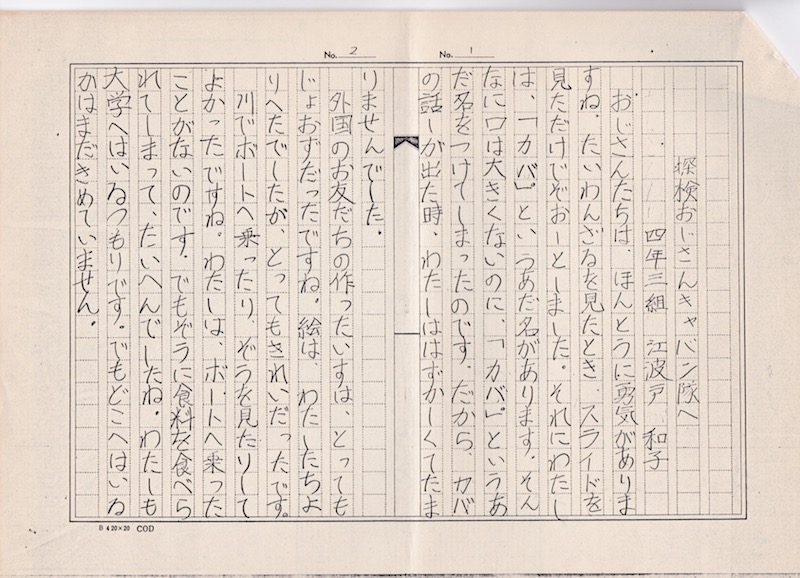 No. 1
探検おじさんキャバン隊へ
四年三組　江波戸　和子
おじさんたちは、ほんとうに勇気がありま
すね。たいわんざるを見たとき、スライドを
見ただけでぞおーとしました。それにわたし
は、「カバ」というあだ名があります。そん
なに口は大きくないのに、「カバ」というあ
だ名をつけてしまったのです。だから、カバ
の話しが出た時、わたしははずかしくてたま
No. 2
りませんでした。
外国のお友だちの作ったいすは、とっても
じょおずだったですね。絵は、わたしたちよ
りへたでしたが、とってもきれいだったです。
川でボートへ乗ったり、ぞうを見たりして
よかったですね。わたしは、ボートへ乗った
ことがないのです。でもぞうに食料を食べら
れてしまって、たいへんでしたね。わたしも
大学へはいるつもりです。でもどこへはいる
かはまだきめていません。
B 4 20×20 COD